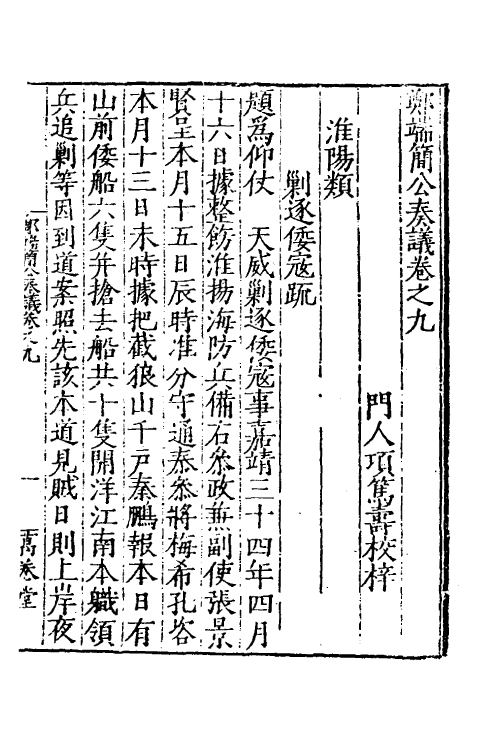 鄭端簡公奏議卷之九
門人項篤壽校梓
淮陽類
剿逐倭寇疏
題爲仰仗　天威剿逐倭寇事嘉靖三十四年四月
十六日據整飭淮揚海防兵備右叅政兼副使張景
賢呈本月十五日辰時准分守通泰叅將梅希孔咨
本月十三日未時據把截狼山千戸秦鵬報本日有
山前倭船六隻并搶去船共十隻開洋江南本職領
兵追剿等因到道案照先該本道見賊日則上岸夜
鄭端簡公奏議卷之九　一　萬卷堂